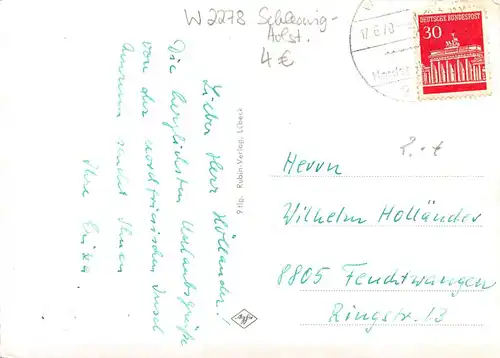 W 2278 Schleswig-
Holst.
4 €
17.6.70
DEUTSCHE BUNDESPOST
30
2.- €
Lieber Herr Holländer!
Die herzlichsten Urlaubsgrüße
von der nordfriesischen Insel
Amrum sendet Ihnen
Ihre Erika
9 tlg. Rubin-Verlag, Lübeck
Herrn
Wilhelm Holländer
8805 Feuchtwangen
Ringstr. 13